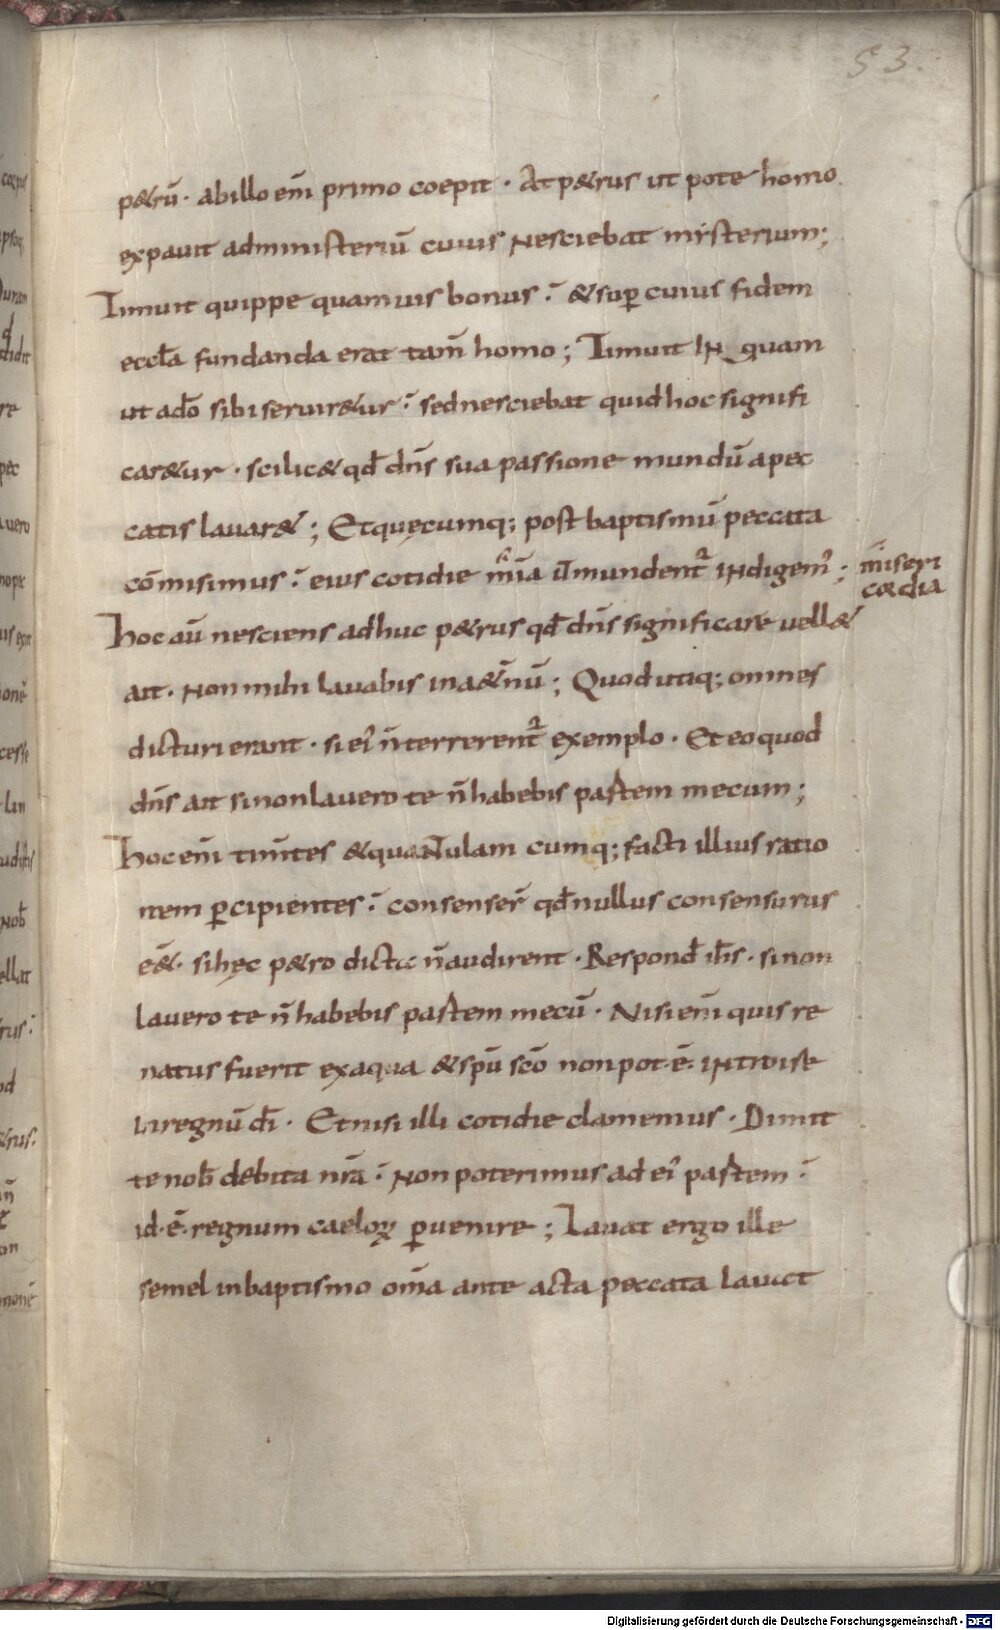 53.
p&rū· abillo eni̅ primo coepit· At p&rus ut pote homo
expauit administeriū cuius nesciebat mysterium;
Timuit quippe quamuis bonus· &sup̱ cuius fidem
eccl̅a fundanda erat tam̅ homo; Timuit inquam
ut ado̅ sibi seruir&ur· sed nesciebat quid hoc signifi
car&ur· scilic& qd̅ dn̅s sua passione mundū apec
catis lauar&; Et quęcumq; post baptismū peccata
co̅misimus· eius cotidie mi̅a ut̅ mundent᷑ indigem᷒;
miseri
cordia
Hoc au̅ nesciens adhuc p&rus qd̅ dn̅s significare uell&
ait· Non mihi lauabis in a&̅nū; Quod utiq; omnes
dicturi erant· si ei᷒ n̅ terrerent᷑ exemplo· Et eo quod
dn̅s ait si non lauero te n̅ habebis partem mecum;
Hoc eni̅ tim̅tes & quantulam cumq; facti illius ratio
nem p̱cipientes· consenser̅ qd̅ nullus consensurus
e&̅· si hęc p&ro dicta n̅ audirent· Respond̅ ih̅s· si non
lauero te n̅ habebis partem mecū· Nisi eni̅ quis re
natus fuerit exaqua &spū sc̅o non pot·e̅· introire
in regnū di̅· Et nisi illi cotidie clamemus· Dimit
te nob̅ debita nr̅a· Non poterimus ad ei᷒ partem·
id·e̅·regnum caeloꝝ p̱uenire; Lauat ergo ille
semel in baptismo om̅a ante acta peccata lauat
Digitalisierung gefördert durch die Deutsche Forschungsgemeinschaft - DFG